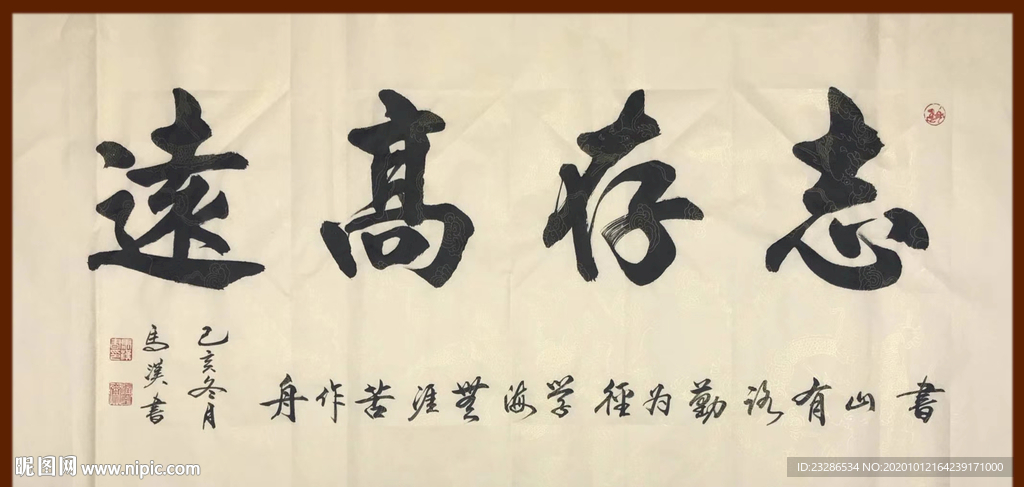 志存高遠
書山有路勤为徑学海無涯苦作舟
己亥冬月
馬漢書
昵图网 www.nipic.com
ID:23286534 NO:20201012164239171000